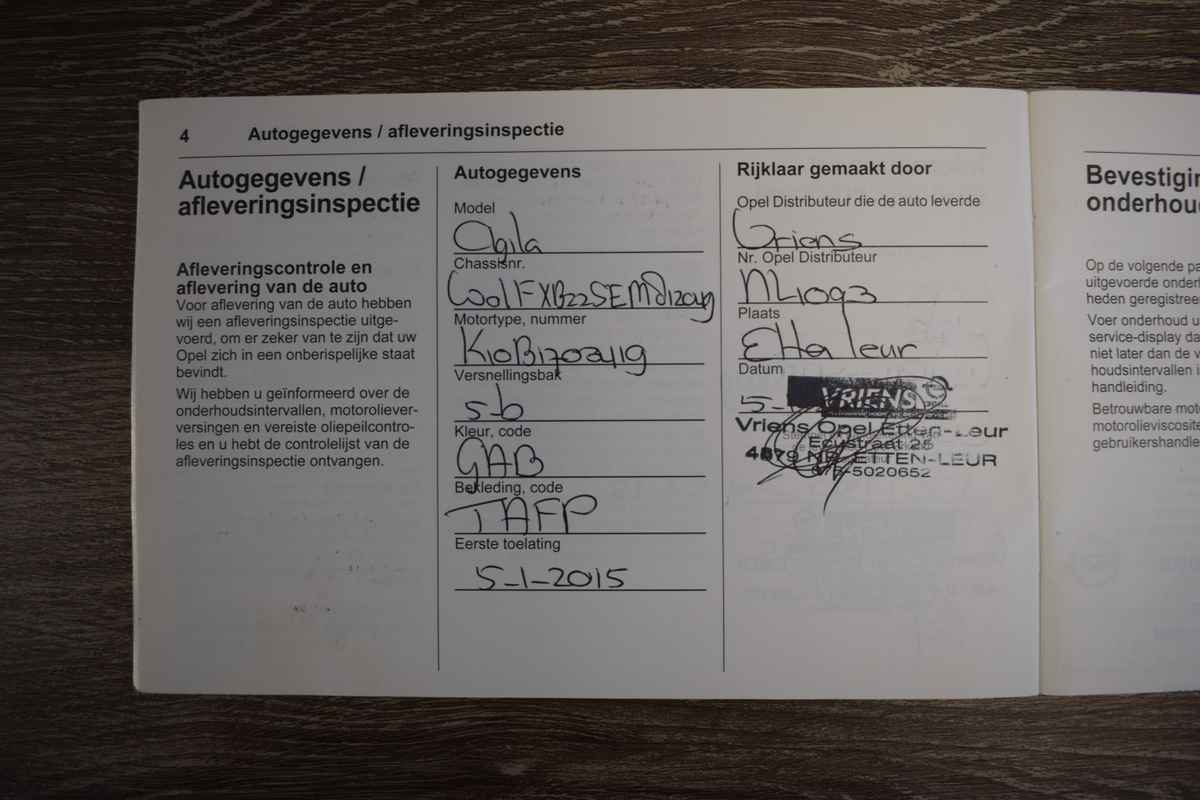 4 Autogegevens / afleveringsinspectie
Autogegevens /
afleveringsinspectie
Afleveringscontrole en
aflevering van de auto
Voor aflevering van de auto hebben
wij een afleveringsinspectie uitge-
voerd, om er zeker van te zijn dat uw
Opel zich in een onberispelijke staat
bevindt.
Wij hebben u geïnformeerd over de
onderhoudsintervallen, motoroliever-
versingen en vereiste oliepeilcontro-
les en u hebt de controlelijst van de
afleveringsinspectie ontvangen.
Autogegevens
Model
Agila
Chassisnr.
Motortype, nummer
Versnellingsbak
5-b
Kleur, code
GAB
Bekleding, code
TAFP
Eerste toelating
5-1-2015
Rijklaar gemaakt door
Opel Distributeur die de auto leverde
Vriens
Nr. Opel Distributeur
NL1093
Plaats
Etten leur
Datum
5-
VRIENS
Vriens Opel Etten-Leur
Ecustraat 25
4879 NP ETTEN-LEUR
5020652
Bevestigin
onderhou
Op de volgende pa
uitgevoerde onderh
heden geregistree
Voer onderhoud u
service-display da
niet later dan de v
houdsintervallen i
handleiding.
Betrouwbare moto
motorolieviscosite
gebruikershandle